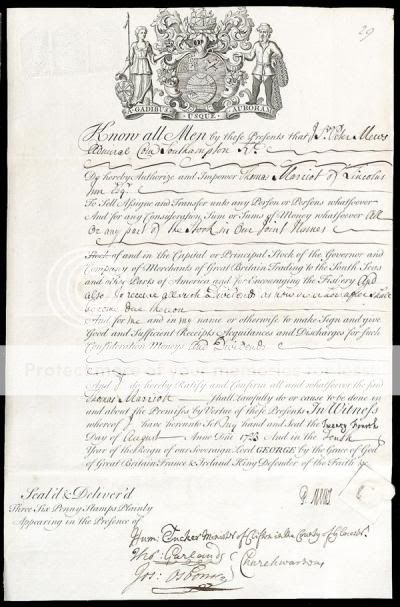 29
A GADIBUS USQUE AURORAM
Know all Men by these Presents that I Sr. Peter Mews
Com Southampton Kt.
Do hereby Authorize and Impower Thomas Marriot of Lincolns
Inn Esqr.
To Sell Assigne and Transfer unto any Person or Persons whatsoever
And for any Consideration Sum or Sums of Money whatsoever All
Or any part of the Stock in Our Joint Names
Stock of and in the Capital or Principal Stock of the Governor and
Company of Merchants of Great Britain Trading to the South Seas
and other Parts of America and for Encouraging the Fishery And
also to receive all such Dividends as now are or hereafter shall
become due thereon
And for me and in my name or otherwise to make Sign and give
Good and Sufficient Receipts Acquitances and Discharges for such
Consideration Moneys And Dividends
And I do hereby Ratify and Confirm all and whatsoever the said
Thomas Marriott Shall Lawfully do or cause to be done in
and about the Premisses by Vertue of these Presents In Witness
whereof I have hereunto Set my hand and Seal the Twenty Fourth
Day of August Anno Dni 172 And in the
Year of the Reign of our Sovereign Lord GEORGE by the Grace of God
of Great Britain France & Ireland King Defender of the Faith &c
Seal'd & Deliver'd
Three Six Penny Stamps Plainly
Appearing in the Presence of
P Mews
Hum: Tucker Minister of Clifton in the County of
Tho: Garland Churchwardens
Jos: Osborne
Protect more of your memories for less!